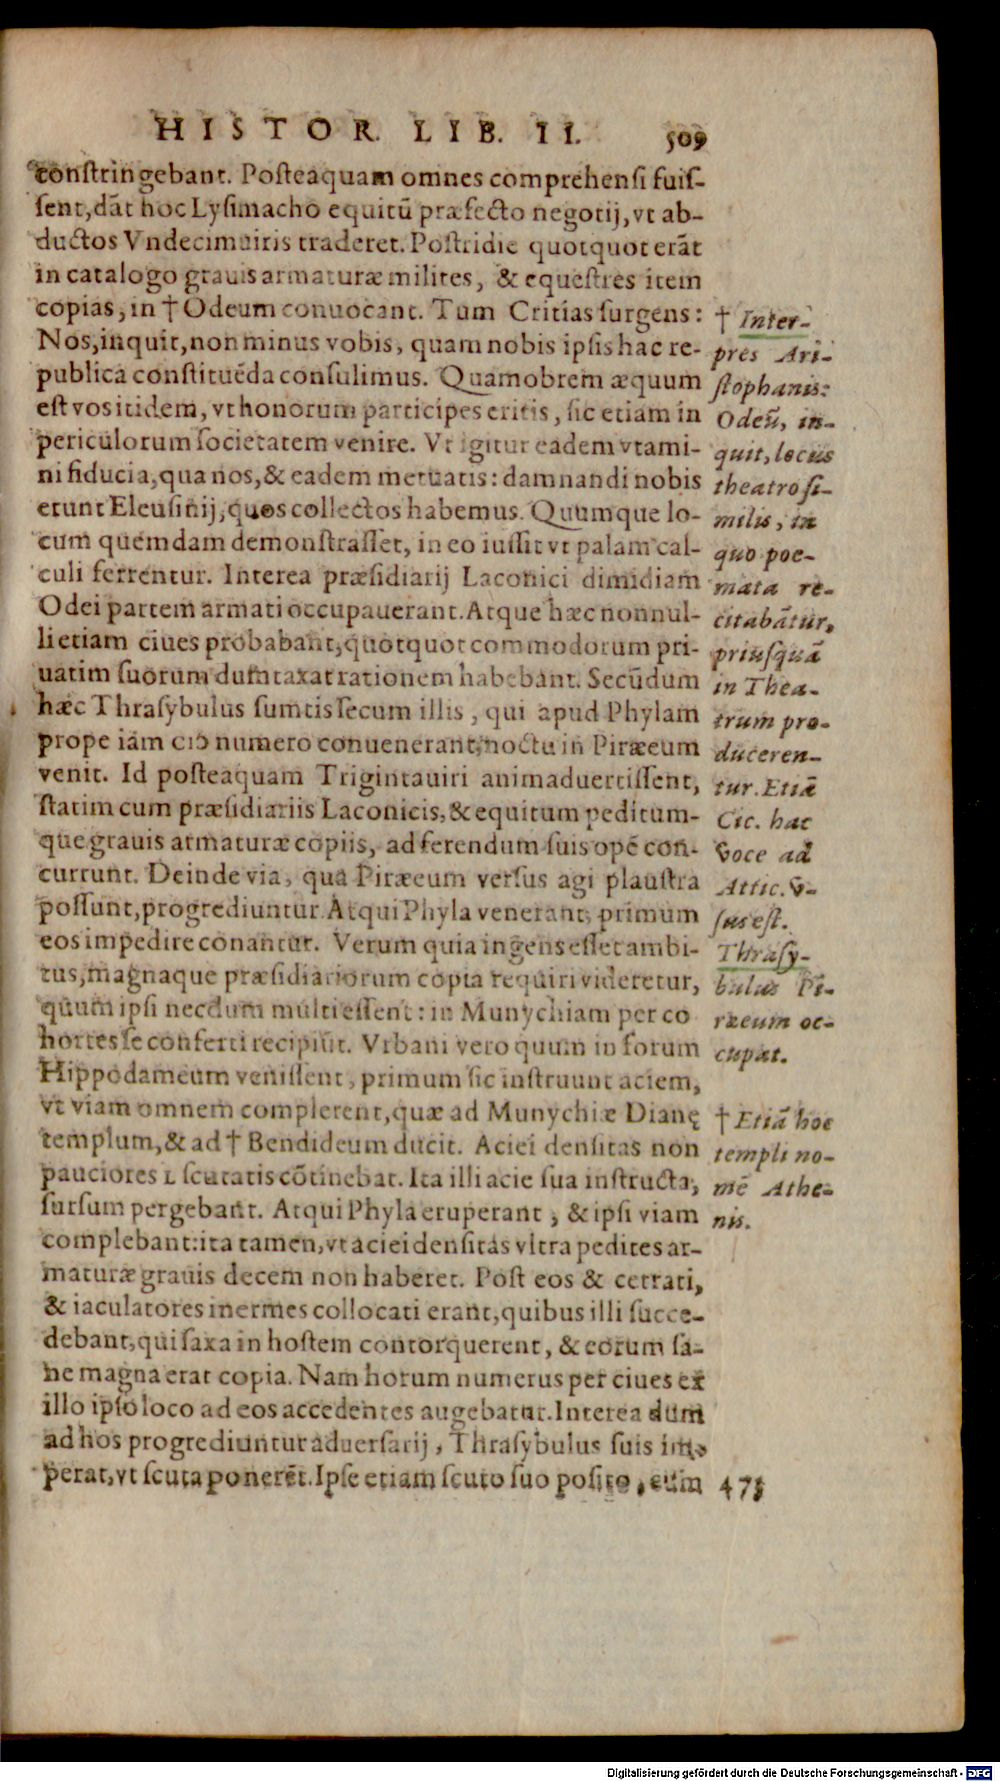 HISTOR. LIB. II. 509
constringebant. Posteaquam omnes comprehensi fuis-
sent, dāt hoc Lysimacho equitū præfecto negotij, vt ab-
ductos Vndecimuiris traderet. Postridie quotquot erāt
in catalogo grauis armaturæ milites, & equestres item
copias, in † Odeum conuocant. Tum Critias surgens:
Nos, inquit, non minus vobis, quam nobis ipsis hac re-
publica constituēda consulimus. Quamobrem æquum
est vos itidem, vt honorum participes eritis, sic etiam in
periculorum societatem venire. Vt igitur eadem vtami-
ni fiducia, qua nos, & eadem metuatis: damnandi nobis
erunt Eleusinij, quos collectos habemus. Quumque lo-
cum quemdam demonstrasset, in eo iussit vt palam cal-
culi ferrentur. Interea præsidiarij Laconici dimidiam
Odei partem armati occupauerant. Atque hæc nonnul-
li etiam ciues probabant, quotquot commodorum pri-
uatim suorum dumtaxat rationem habebant. Secūdum
hæc Thrasybulus sumtis secum illis, qui apud Phylam
prope iam cIↃ numero conuenerant, noctu in Piræeum
venit. Id posteaquam Trigintauiri animaduertissent,
statim cum præsidiariis Laconicis, & equitum peditum-
que grauis armaturæ copiis, ad ferendum suis opē con-
currunt. Deinde via, qua Piræeum versus agi plaustra
possunt, progrediuntur. At qui Phyla venerant, primum
eos impedire conantur. Verum quia ingens esset ambi-
tus, magnaque præsidiariorum copia requiri videretur,
quum ipsi necdum multi essent: in Munychiam per co
hortes se conferti recipiūt. Vrbani vero quum in forum
Hippodameum venissent, primum sic instruunt aciem,
vt viam omnem complerent, quæ ad Munychiæ Dianę
templum, & ad † Bendideum ducit. Aciei densitas non
pauciores L scutatis cōtinebat. Ita illi acie sua instructa,
sursum pergebant. At qui Phyla eruperant, & ipsi viam
complebant: ita tamen, vt aciei densitas vltra pedites ar-
maturæ grauis decem non haberet. Post eos & cetrati,
& iaculatores inermes collocati erant, quibus illi succe-
debant, qui saxa in hostem contorquerent, & eorum sa-
ne magna erat copia. Nam horum numerus per ciues ex
illo ipso loco ad eos accedentes augebatur. Interea dum
ad hos progrediuntur aduersarij, Thrasybulus suis im-
perat, vt scuta ponerēt. Ipse etiam scuto suo posito, cum
† Inter-
pres Ari-
stophanis:
Odeū, in-
quit, locus
theatro si-
milis, in
quo poe-
mata re-
citabātur,
priusquā
in Thea-
trum pro-
duceren-
tur. Etiā
Cic. hac
voce ad
Attic. v-
sus est.
Thrasy-
bulus Pi-
ræeum oc-
cupat.
† Etiā hoc
templi no-
mē Athe-
nis.
471
Digitalisierung gefördert durch die Deutsche Forschungsgemeinschaft - DFG